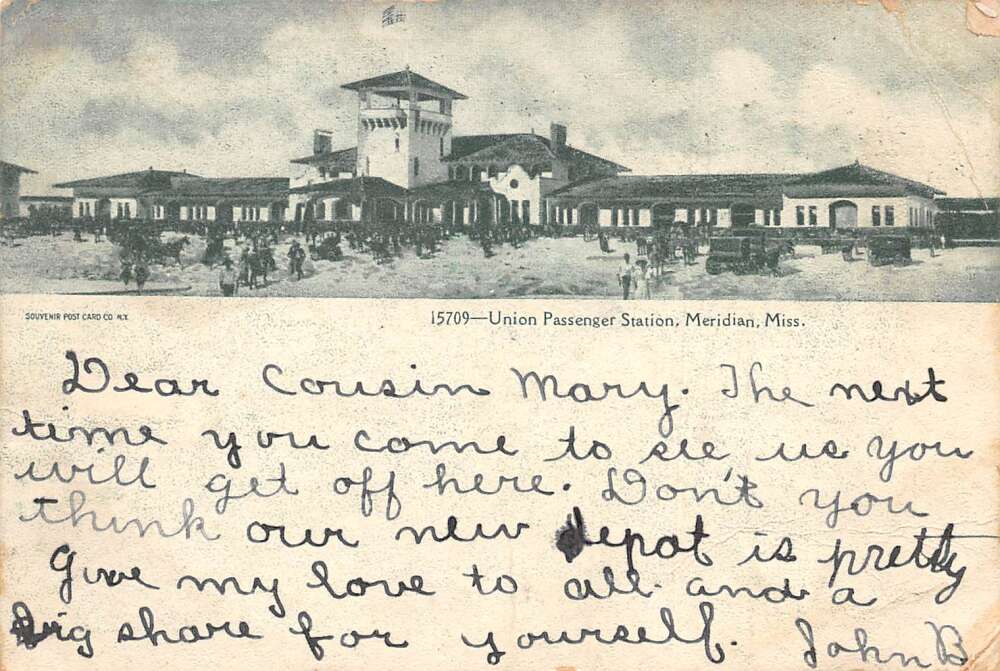 SOUVENIR POST CARD CO. N.Y.
15709—Union Passenger Station, Meridian, Miss.
Dear Cousin Mary. The next
time you come to see us you
will get off here. Don't you
think our new depot is pretty
Give my love to all and a
big share for yourself. John B